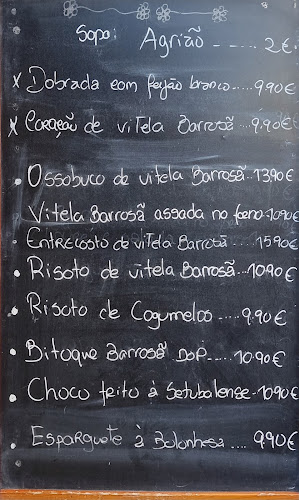 Sopa: Agrião ----- 2€.
x Dobrada com feijão branco ---- 9,90€
x Coração de vitela Barrosã .. 9.90€
• Ossobuco de vitela Barrosã .. 13,90€
Vitela Barrosã assada no forno -10,90€
• Entrecosto de vitela Barrosã .... 15,90€
• Risoto de vitela Barrosã ... 10,90€
• Risoto de Cogumelos ..... 9.90€
• Bitoque Barrosã DOP ..... 10,90€
• Choco frito à Setubalense -10,90€
• Esparguete à Bolonhesa .... 9,90€